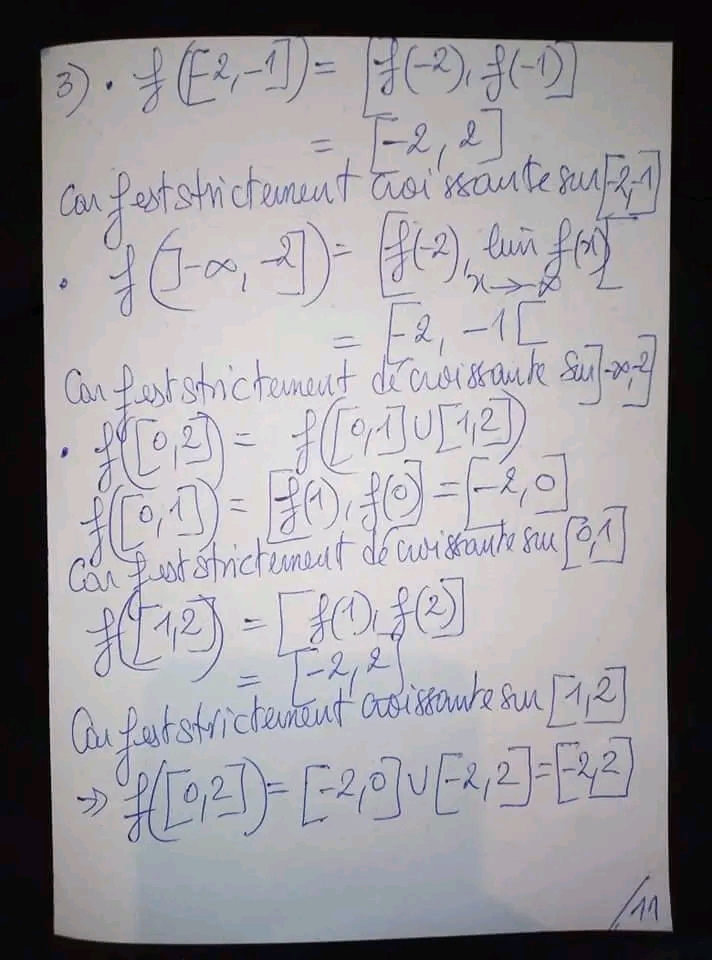 3) • f([-2,-1]) = [f(-2), f(-1)]
= [-2, 2]
Car f est strictement croissante sur [-2,-1]
• f(]-∞, -2]) = [f(-2), lim f(x)[
x→-∞
= [-2, -1[
Car f est strictement décroissante sur ]-∞,-2]
• f([0,2]) = f([0,1]∪[1,2])
f([0,1]) = [f(1), f(0)] = [-2,0]
Car f est strictement décroissante sur [0,1]
f([1,2]) = [f(1), f(2)]
= [-2, 2]
Car f est strictement croissante sur [1,2]
⇒ f([0,2]) = [-2,0] ∪ [-2,2] = [-2,2]
/11